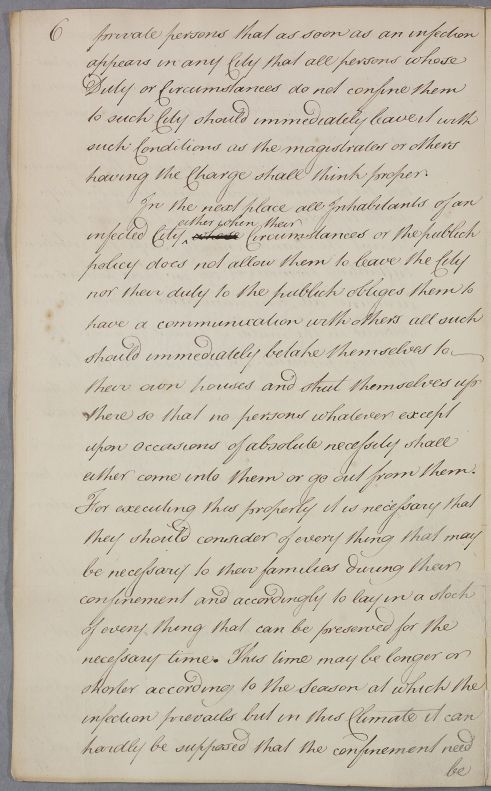 6
private persons that as soon as an infection
appears in any City that all persons whose
Duty or Circumstances do not confine them
to such City should immediately leave it with
such Conditions as the magistrates or others
having the Charge shall think proper.
In the next place all Inhabitants of an
either when their
infected City ^ whose Circumstances or the publick
policy does not allow them to leave the City
nor their duty to the publick obliges them to
have a communication with others all such
should immediately betake themselves to
their own houses and shut themselves up
there so that no persons whatever except
upon occasions of absolute necessity shall
either come into them or go out from them.
For executing this properly it is necessary that
they should consider of every thing that may
be necessary to their families during their
confinement and accordingly to lay in a stock
of every thing that can be preserved for the
necessary time. This time may be longer or
shorter according to the Season at which the
infection prevails but in this Climate it can
hardly be supposed that the confinement need
be